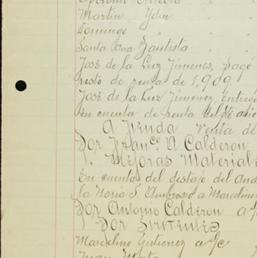 Martin Ydn
Domingo
Santa Ana Bautista
José de la Luz Jimenes, pagó
resto de renta de 1909
José de la Luz Jimenez, entreg
en cuenta de renta del
A Venta de
Por Franco A Calderon
P. Mejoras Material
En cuenta del destajo del And
la Noria S. Ambrosio a Marcelino
Por Antonio Calderon a/c
P. Por Sirvientes
Marcelino Gutierez a/c
Juan